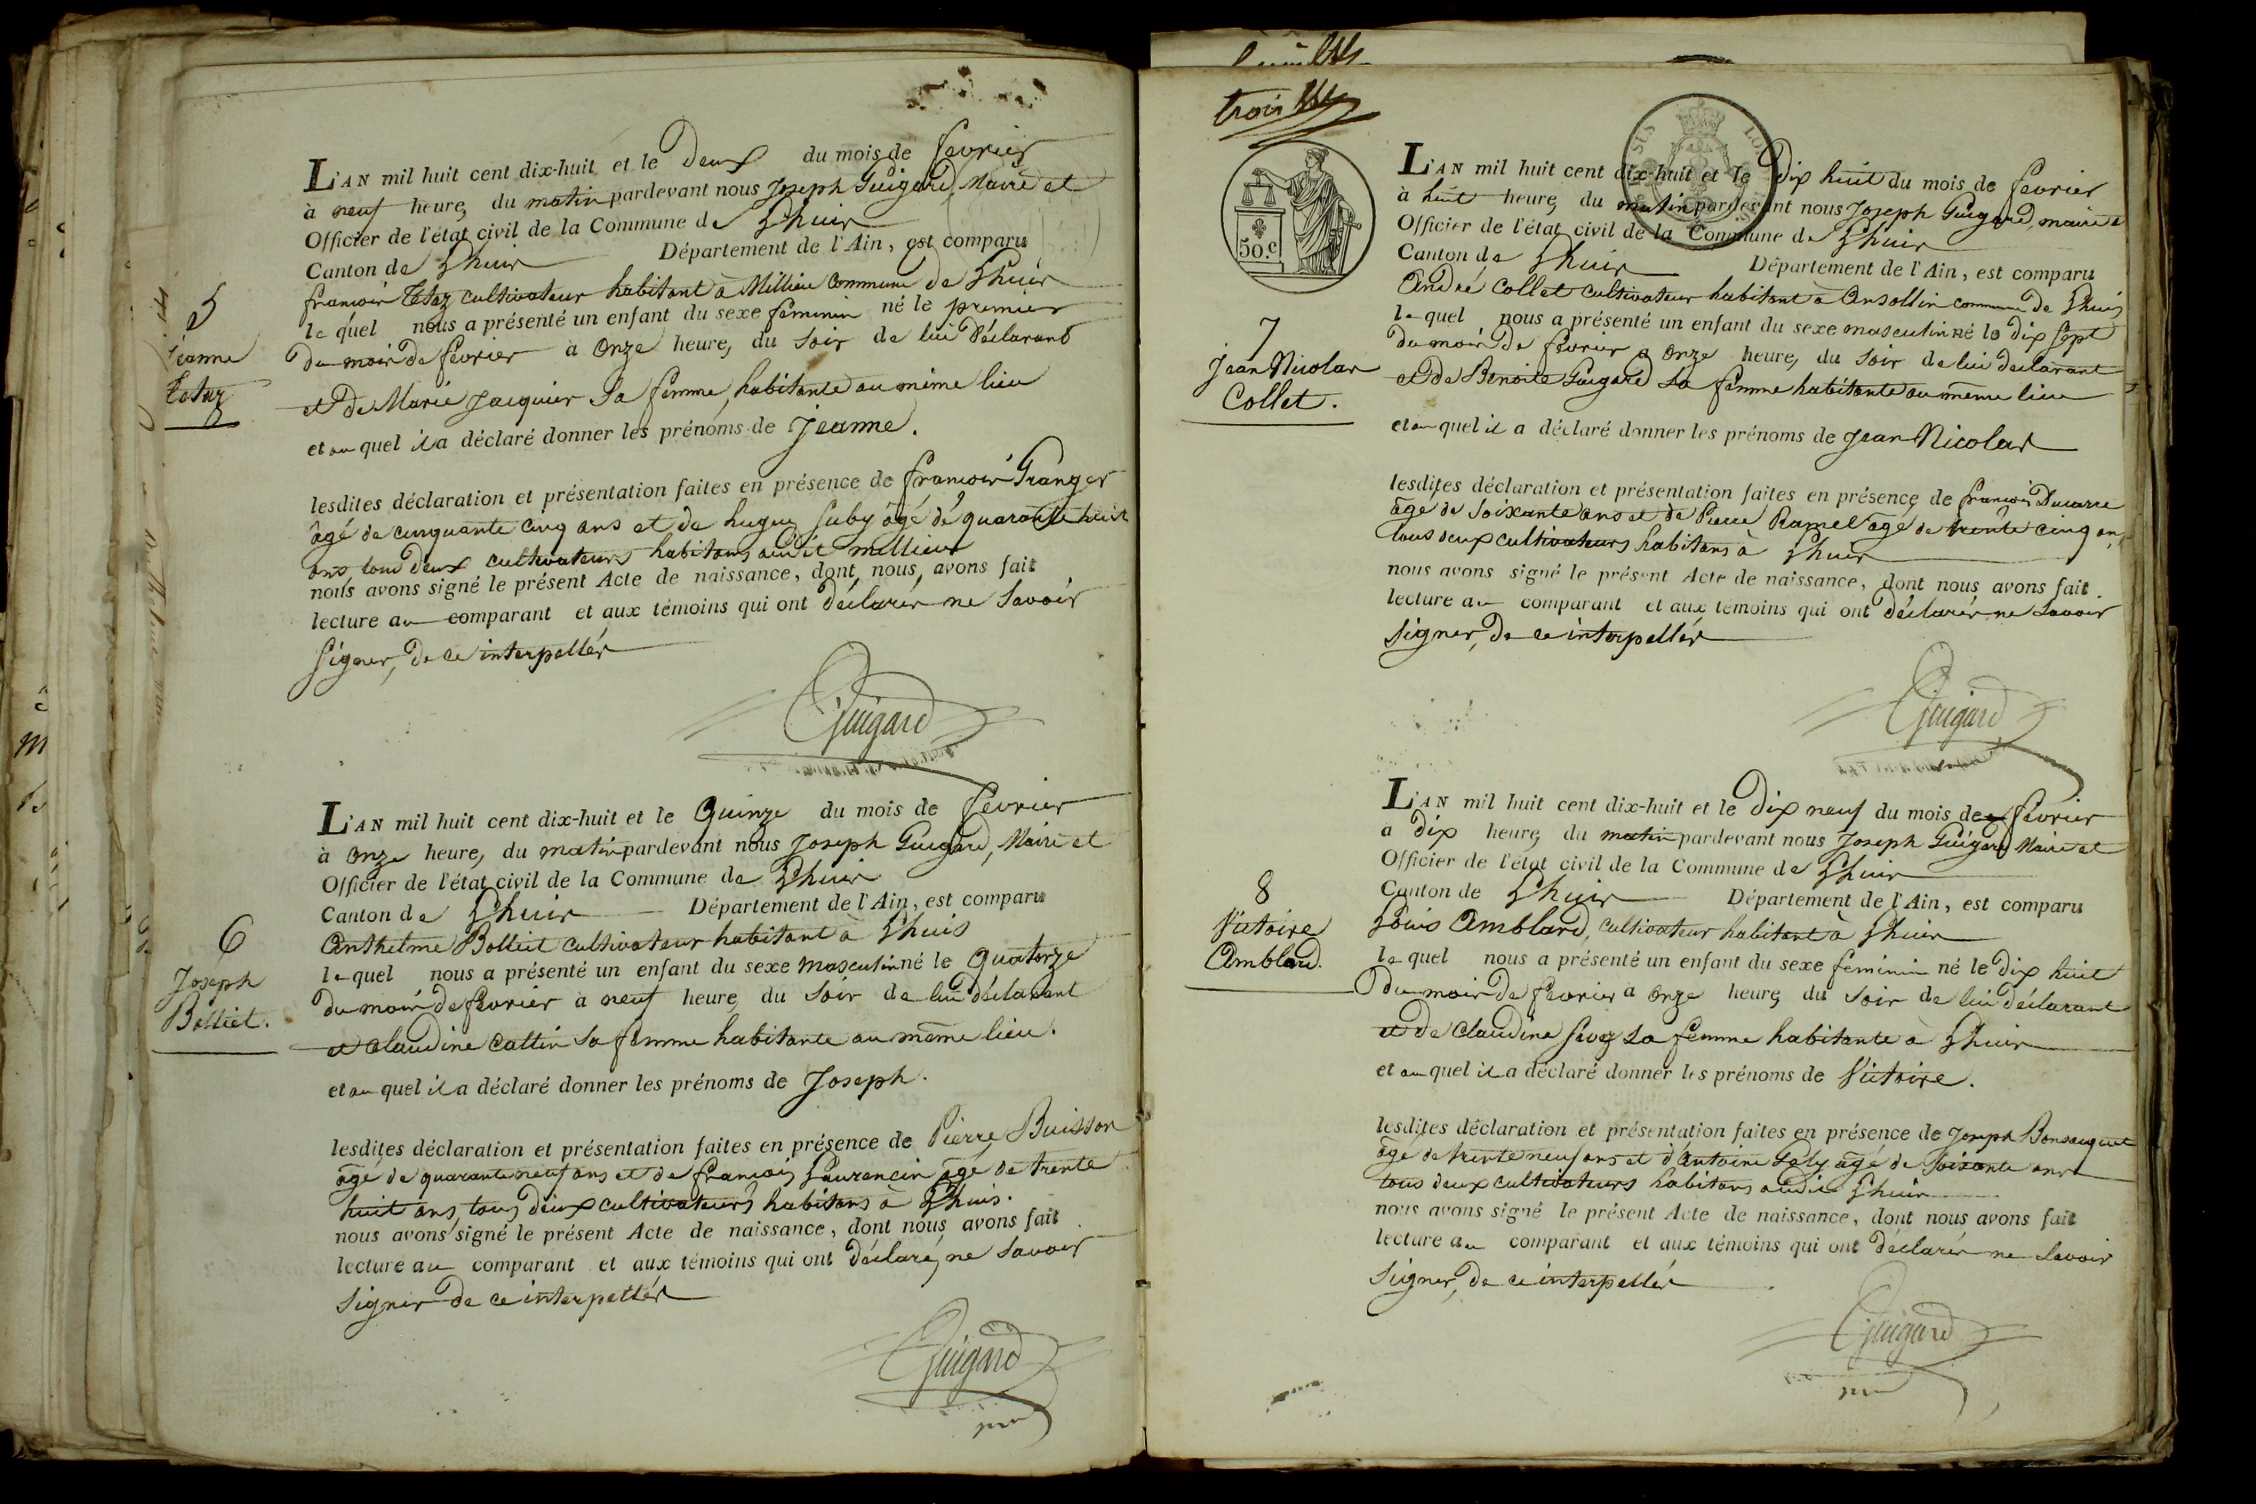 L'AN mil huit cent dix-huit et le Deux du mois de fevrier
à neuf heures du matin pardevant nous Joseph Guigard, Maire et
Officier de l'état civil de la Commune de Lhuis
Canton de Lhuis Département de l'Ain, est comparu
francois Tetaz cultivateur habitant à Millieu Commune de Lhuis
lequel nous a présenté un enfant du sexe feminin né le premier
du mois de fevrier à onze heures du soir de lui Déclarant
et de Marie Jacquier sa femme, habitante au même lieu
et auquel il a déclaré donner les prénoms de Jeanne.
lesdites déclaration et présentation faites en présence de francois Granger
âgé de cinquante cinq ans et de hugues Suby âgé de quarante huit
ans, tous deux cultivateurs habitans audit millieu
nous avons signé le présent Acte de naissance, dont nous avons fait
lecture au comparant et aux témoins qui ont déclarés ne savoir
signer, de ce interpellés
Guigard
5
Jeanne
Tetaz
L'AN mil huit cent dix-huit et le Quinze du mois de fevrier
à onze heures du matin pardevant nous Joseph Guigard, Maire et
Officier de l'état civil de la Commune de Lhuis
Canton de Lhuis Département de l'Ain, est comparu
Anthelme Bolliet cultivateur habitant à Lhuis
lequel nous a présenté un enfant du sexe masculin né le quatorze
du mois de fevrier à neuf heures du soir de lui déclarant
et claudine Cattin sa femme habitante au même lieu.
et auquel il a déclaré donner les prénoms de Joseph.
lesdites déclaration et présentation faites en présence de Pierre Buisson
âgé de quarante neuf ans et de francois Laurencin âgé de trente
huit ans, tous deux cultivateurs habitans à Lhuis.
nous avons signé le présent Acte de naissance, dont nous avons fait
lecture au comparant et aux témoins qui ont déclarés ne savoir
signer de ce interpellés
Guigard
6
Joseph
Bolliet.
trois
50.c
L'AN mil huit cent dix-huit et le Dix huit du mois de fevrier
à huit heures du matin pardevant nous Joseph Guigard, maire et
Officier de l'état civil de la Commune de Lhuis
Canton de Lhuis Département de l'Ain, est comparu
André Collet cultivateur habitant à Ansollin commune de Lhuis
lequel nous a présenté un enfant du sexe masculin né le dix sept
du mois de fevrier à onze heures du soir de lui declarant
et de Benoite Guigard sa femme habitante au même lieu
et auquel il a déclaré donner les prénoms de Jean Nicolas
lesdites déclaration et présentation faites en présence de francois Ducarre
âgé de soixante ans et de Pierre Ramel âgé de trente cinq ans
tous deux cultivateurs habitans à Lhuis
nous avons signé le présent Acte de naissance, dont nous avons fait
lecture au comparant et aux témoins qui ont déclarés ne savoir
signer, de ce interpellés
Guigard
7
Jean Nicolas
Collet.
L'AN mil huit cent dix-huit et le Dix neuf du mois de fevrier
à Dix heures du matin pardevant nous Joseph Guigard Maire et
Officier de l'état civil de la Commune de Lhuis
Canton de Lhuis Département de l'Ain, est comparu
Louis Amblard, cultivateur habitant à Lhuis
lequel nous a présenté un enfant du sexe feminin né le dix huit
du mois de fevrier à onze heures du soir de lui déclarant
et de claudine sa femme habitante à Lhuis
et auquel il a déclaré donner les prénoms de Victoire.
lesdites déclaration et présentation faites en présence de Joseph
âgé de trente neuf ans et d'Antoine âgé de soixante ans
tous deux cultivateurs habitans audit Lhuis
nous avons signé le présent Acte de naissance, dont nous avons fait
lecture au comparant et aux témoins qui ont déclarés ne savoir
signer, de ce interpellés
Guigard
8
Victoire
Amblard.